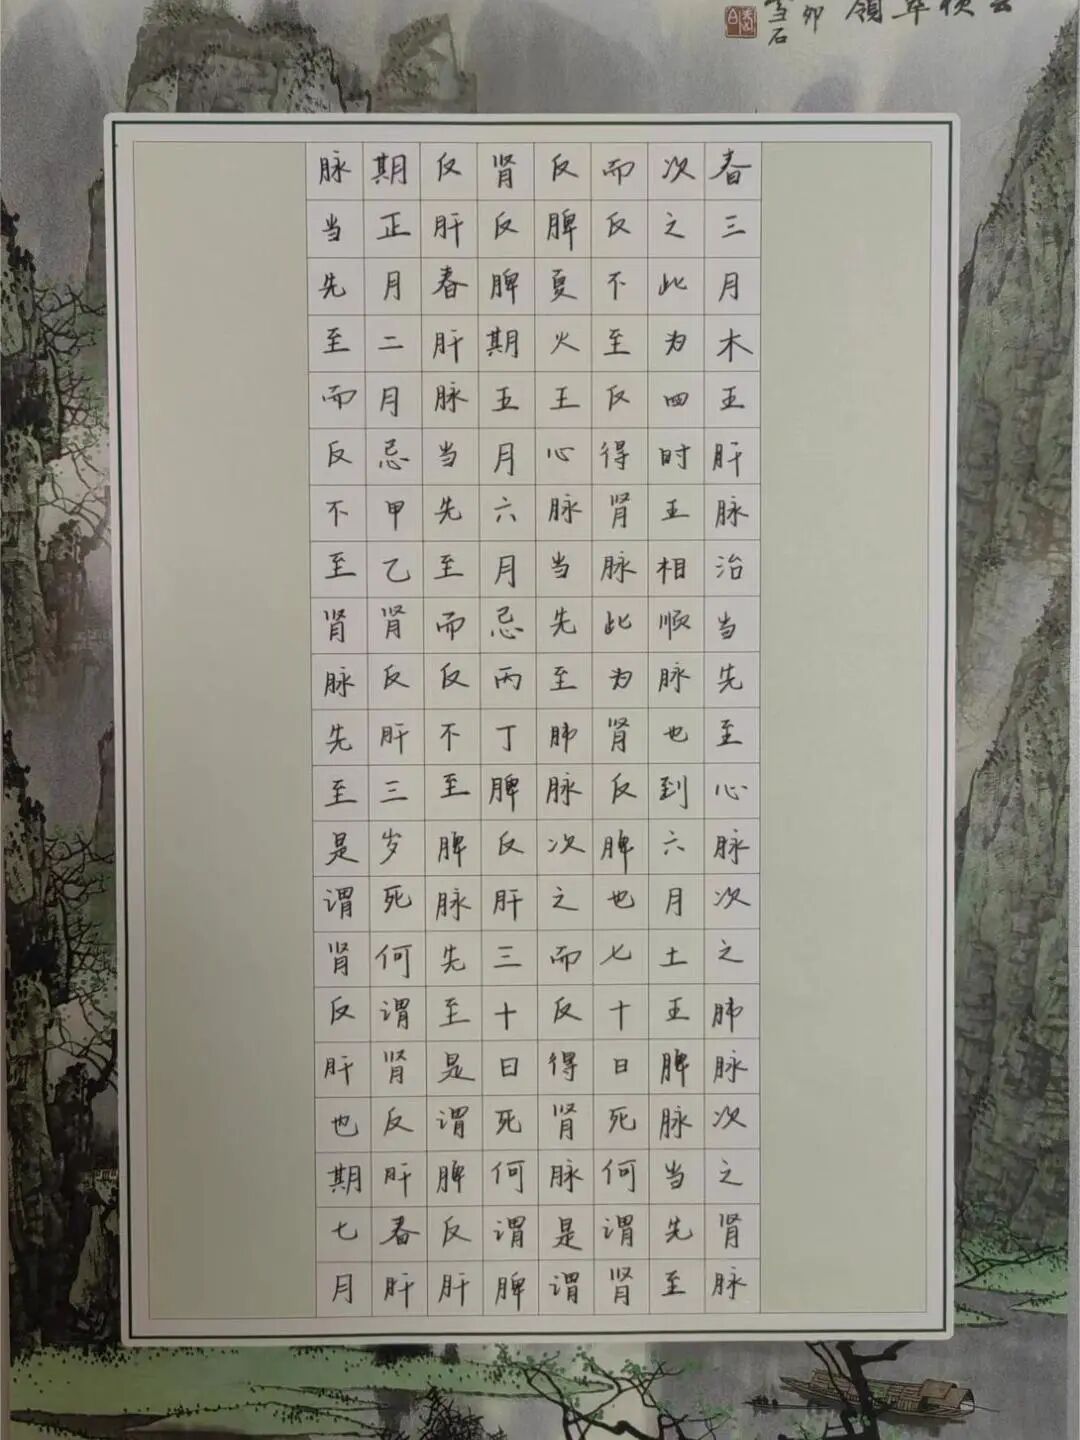 春三月木王肝脉治当先至心脉次之肺脉次之肾脉
次之此为四时王相顺脉也到六月土王脾脉当先至
而反不至反得肾脉此为肾反脾也七十日死何谓肾
反脾夏火王心脉当先至肺脉次之而反得肾脉是谓
肾反脾期五月六月忌丙丁脾反肝三十日死何谓脾
反肝春肝脉当先至而反不至脾脉先至是谓脾反肝
期正月二月忌甲乙肾反肝三岁死何谓肾反肝春肝
脉当先至而反不至肾脉先至是谓肾反肝也期七月
领
卯
雪石